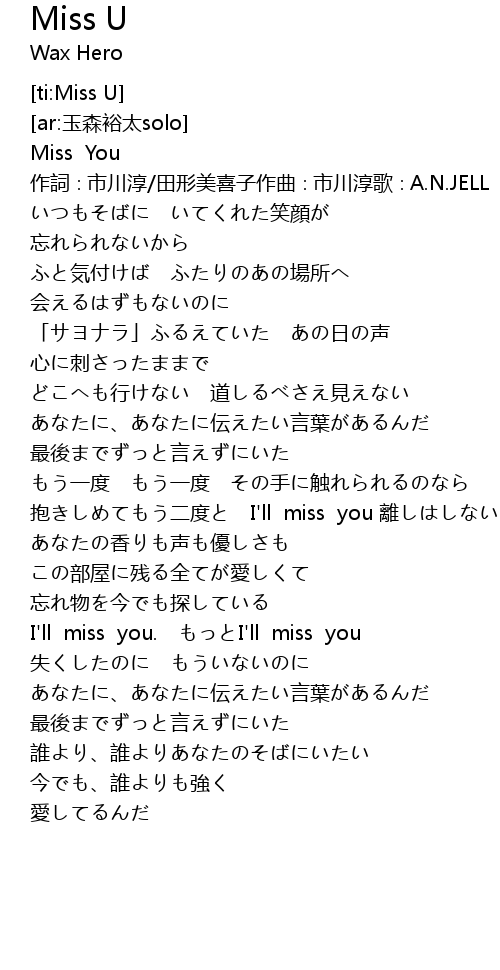 Miss U
Wax Hero
[ti:Miss U]
[ar:玉森裕太solo]
Miss  You
作詞 : 市川淳/田形美喜子作曲 : 市川淳歌 : A.N.JELL
いつもそばに　いてくれた笑顔が
忘れられないから
ふと気付けば　ふたりのあの場所へ
会えるはずもないのに
「サヨナラ」ふるえていた　あの日の声
心に刺さったままで
どこへも行けない　道しるべさえ見えない
あなたに、あなたに伝えたい言葉があるんだ
最後までずっと言えずにいた
もう一度　もう一度　その手に触れられるのなら
抱きしめてもう二度と　I'll  miss  you 離しはしない
あなたの香りも声も優しさも
この部屋に残る全てが愛しくて
忘れ物を今でも探している
I'll  miss  you.　もっとI'll  miss  you
失くしたのに　もういないのに
あなたに、あなたに伝えたい言葉があるんだ
最後までずっと言えずにいた
誰より、誰よりあなたのそばにいたい
今でも、誰よりも強く
愛してるんだ